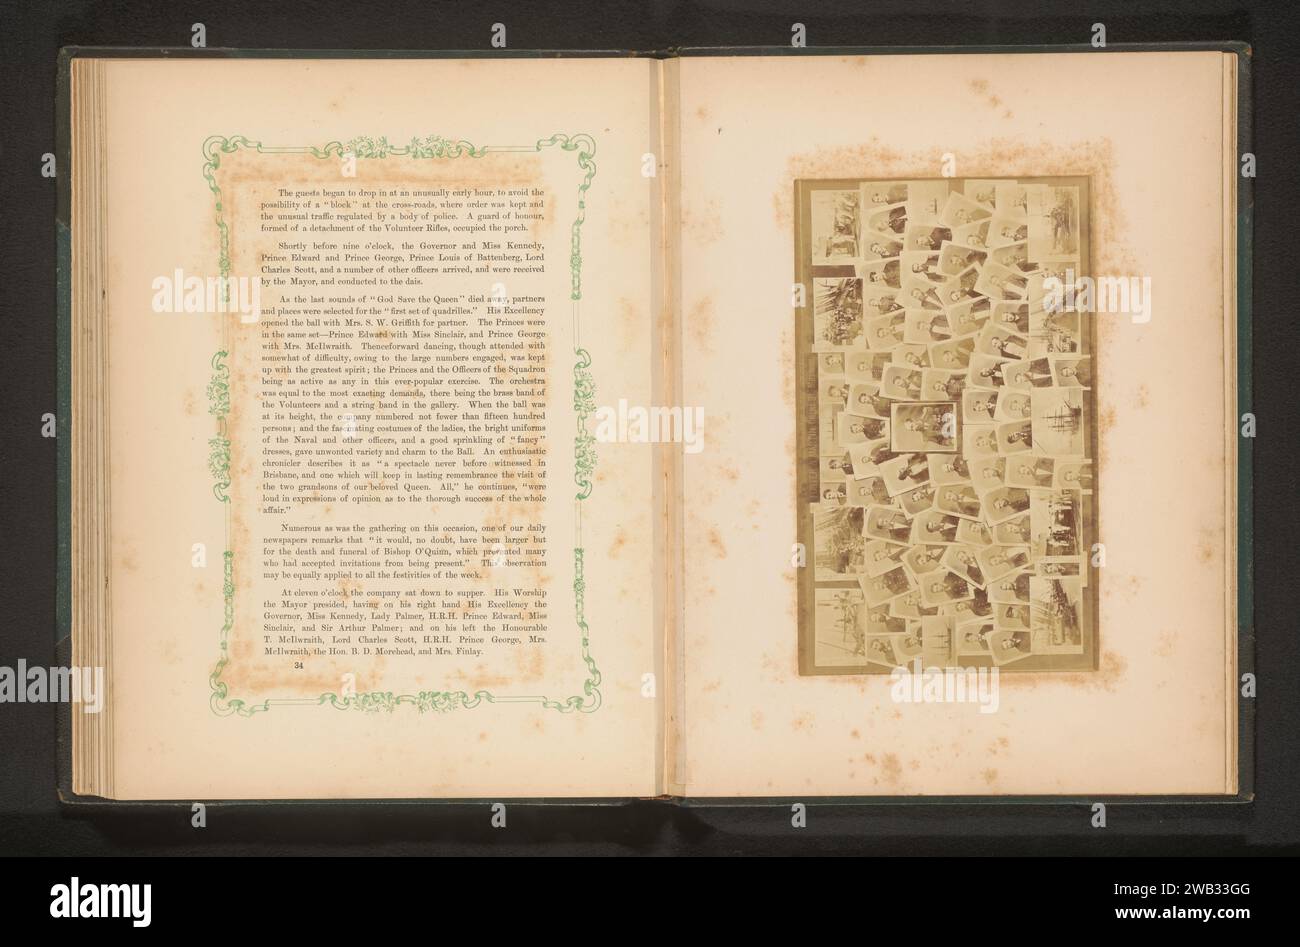 The guests began to drop in at an unusually early hour, to avoid the
possibility of a "block" at the cross-roads, where order was kept and
the unusual traffic regulated by a body of police. A guard of honour,
formed of a detachment of the Volunteer Rifles, occupied the porch.
Shortly before nine o'clock, the Governor and Miss Kennedy,
Prince Edward and Prince George, Prince Louis of Battenberg, Lord
Charles Scott, and a number of other officers arrived, and were received
by the Mayor, and conducted to the dais.
As the last sounds of "God Save the Queen" died away, partners
and places were selected for the "first set of quadrilles." His Excellency
opened the ball with Mrs. S. W. Griffith for partner. The Princes were
in the same set—Prince Edward with Miss Sinclair, and Prince George
with Mrs. McIlwraith. Thenceforward dancing, though attended with
somewhat of difficulty, owing to the large numbers engaged, was kept
up with the greatest spirit; the Princes and the Officers of the Squadron
being as active as any in this ever-popular exercise. The orchestra
was equal to the most exacting demands, there being the brass band of
the Volunteers and a string band in the gallery. When the ball was
at its height, the company numbered not fewer than fifteen hundred
persons; and the fascinating costumes of the ladies, the bright uniforms
of the Naval and other officers, and a good sprinkling of "fancy"
dresses, gave unwonted variety and charm to the Ball. An enthusiastic
chronicler describes it as "a spectacle never before witnessed in
Brisbane, and one which will keep in lasting remembrance the visit of
the two grandsons of our beloved Queen. All," he continues, "were
loud in expressions of opinion as to the thorough success of the whole
affair."
Numerous as was the gathering on this occasion, one of our daily
newspapers remarks that "it would, no doubt, have been larger but
for the death and funeral of Bishop O'Quinn, which prevented many
who had accepted invitations from being present." This observation
may be equally applied to all the festivities of the week.
At eleven o'clock the company sat down to supper. His Worship
the Mayor presided, having on his right hand His Excellency the
Governor, Miss Kennedy, Lady Palmer, H.R.H. Prince Edward, Miss
Sinclair, and Sir Arthur Palmer; and on his left the Honourable
T. McIlwraith, Lord Charles Scott, H.R.H. Prince George, Mrs.
McIlwraith, the Hon. B. D. Morehead, and Mrs. Finlay.
34
alamy
alamy
Image ID: 2WB33GG
www.alamy.com